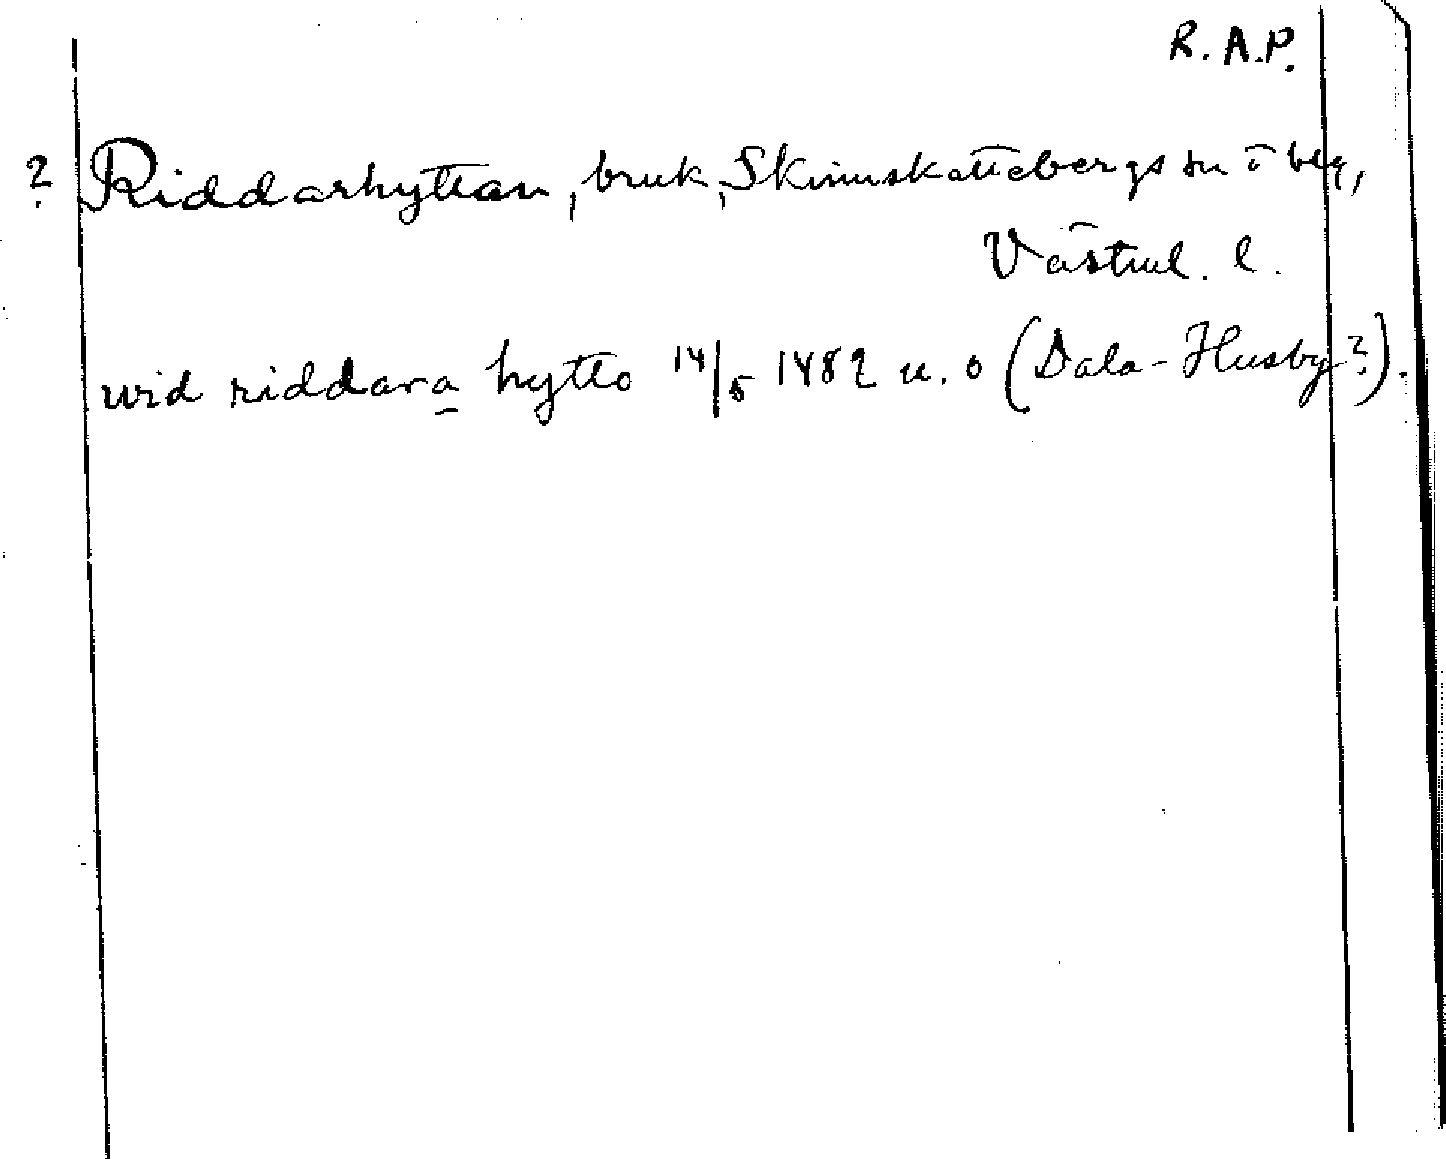 R. A. P.
? Riddarhyttan, bruk, Skinnskattebergs sn o blg,
Västml. l.
wid riddara hytto 14/5 1482 u. o (Dala-Husby?).